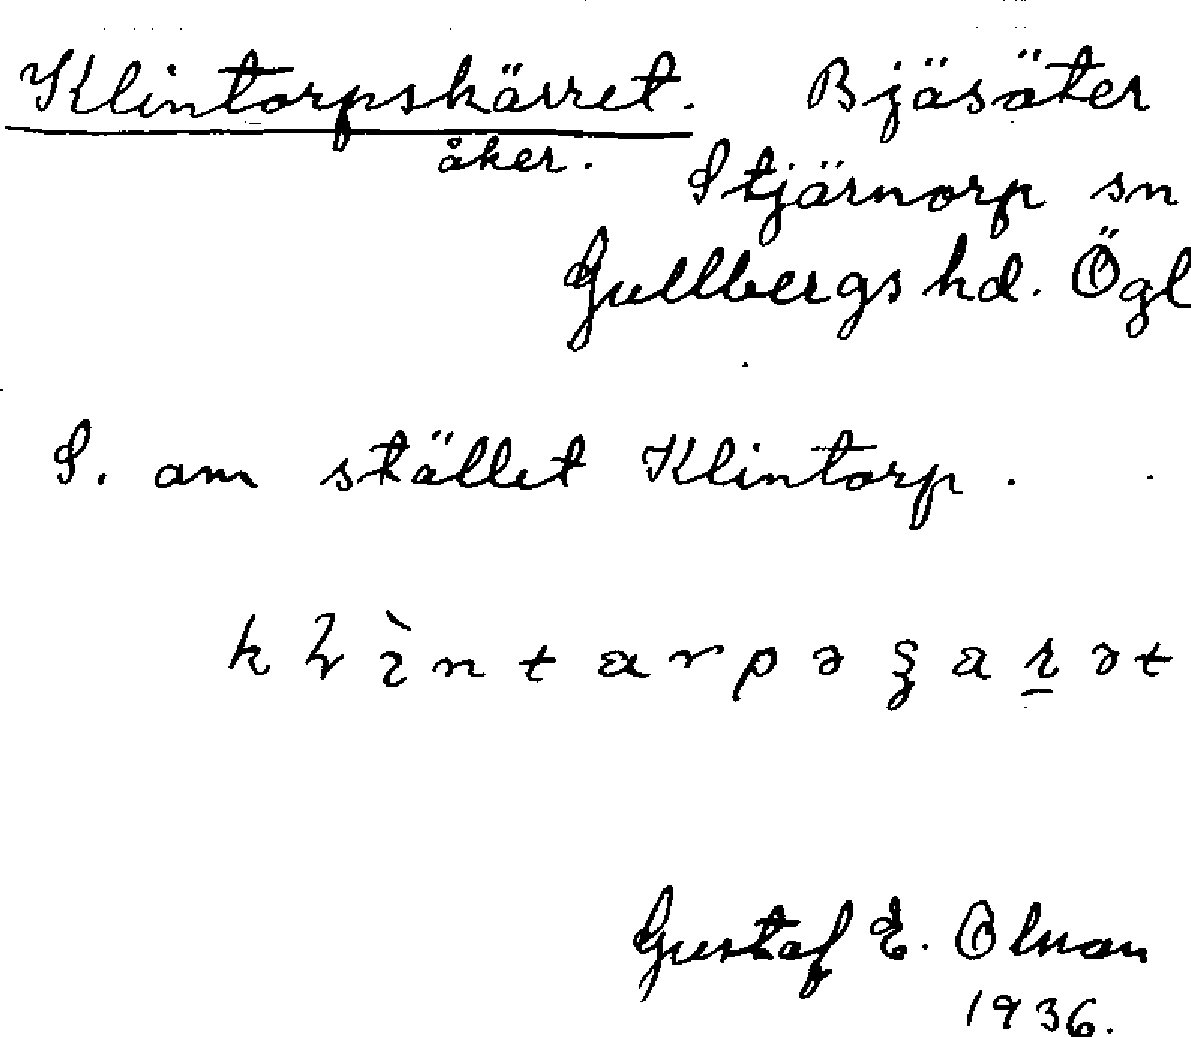 Klintorpskärret. Bjäsäter
åker. Stjärnorp sn
Gullbergs hd. Ögl
S. om stället Klintorp.
Gustaf E. Olson
1936.